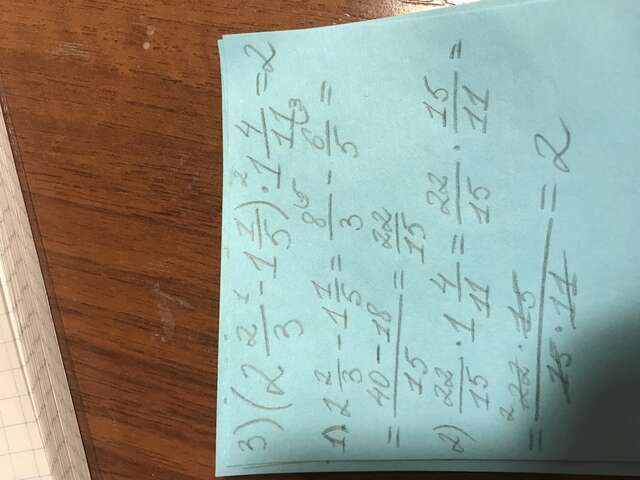 3) (2 2/3 - 1 1/5) · 1 4/11 = 2
1). 2 2/3 - 1 1/5 = 8/3 - 6/5 =
= 40 - 18/15 = 22/15
2) 22/15 · 1 4/11 = 22/15 · 15/11 =
= 22 · 15/15 · 11 = 2